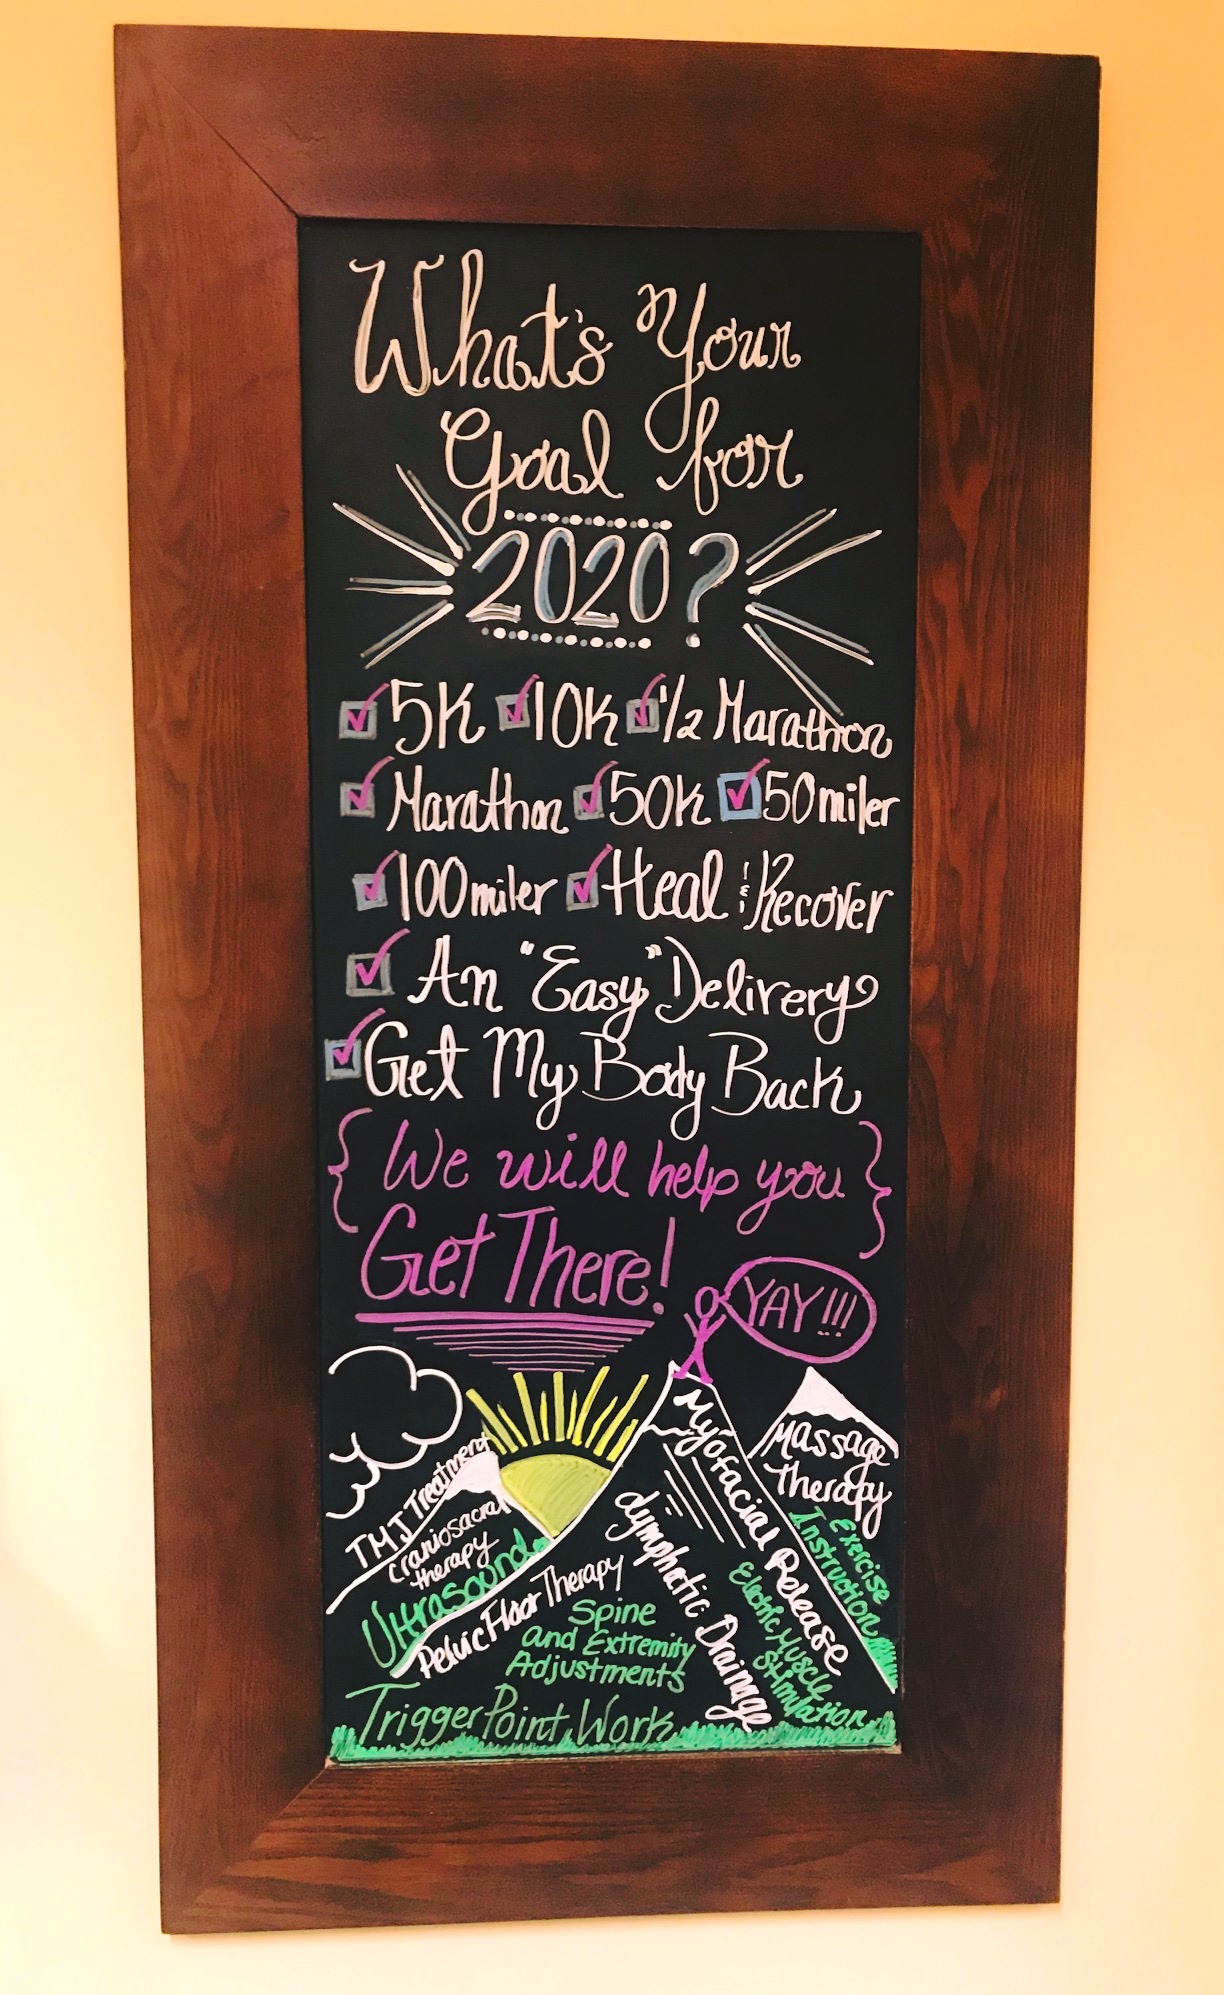 What's Your
Goal for
2020?
5K 10K 1/2 Marathon
Marathon 50K 50miler
100miler Heal & Recover
An "Easy" Delivery
Get My Body Back
{ We will help you }
Get There!
YAY!!!
TMJ Treatment
Craniosacral
therapy
Ultrasound
Pelvic Floor Therapy
Spine
and Extremity
Adjustments
Trigger Point Work
Lymphatic Drainage
Myofacial Release
Massage
Therapy
Exercise
Instruction
Electric Muscle
Stimulation